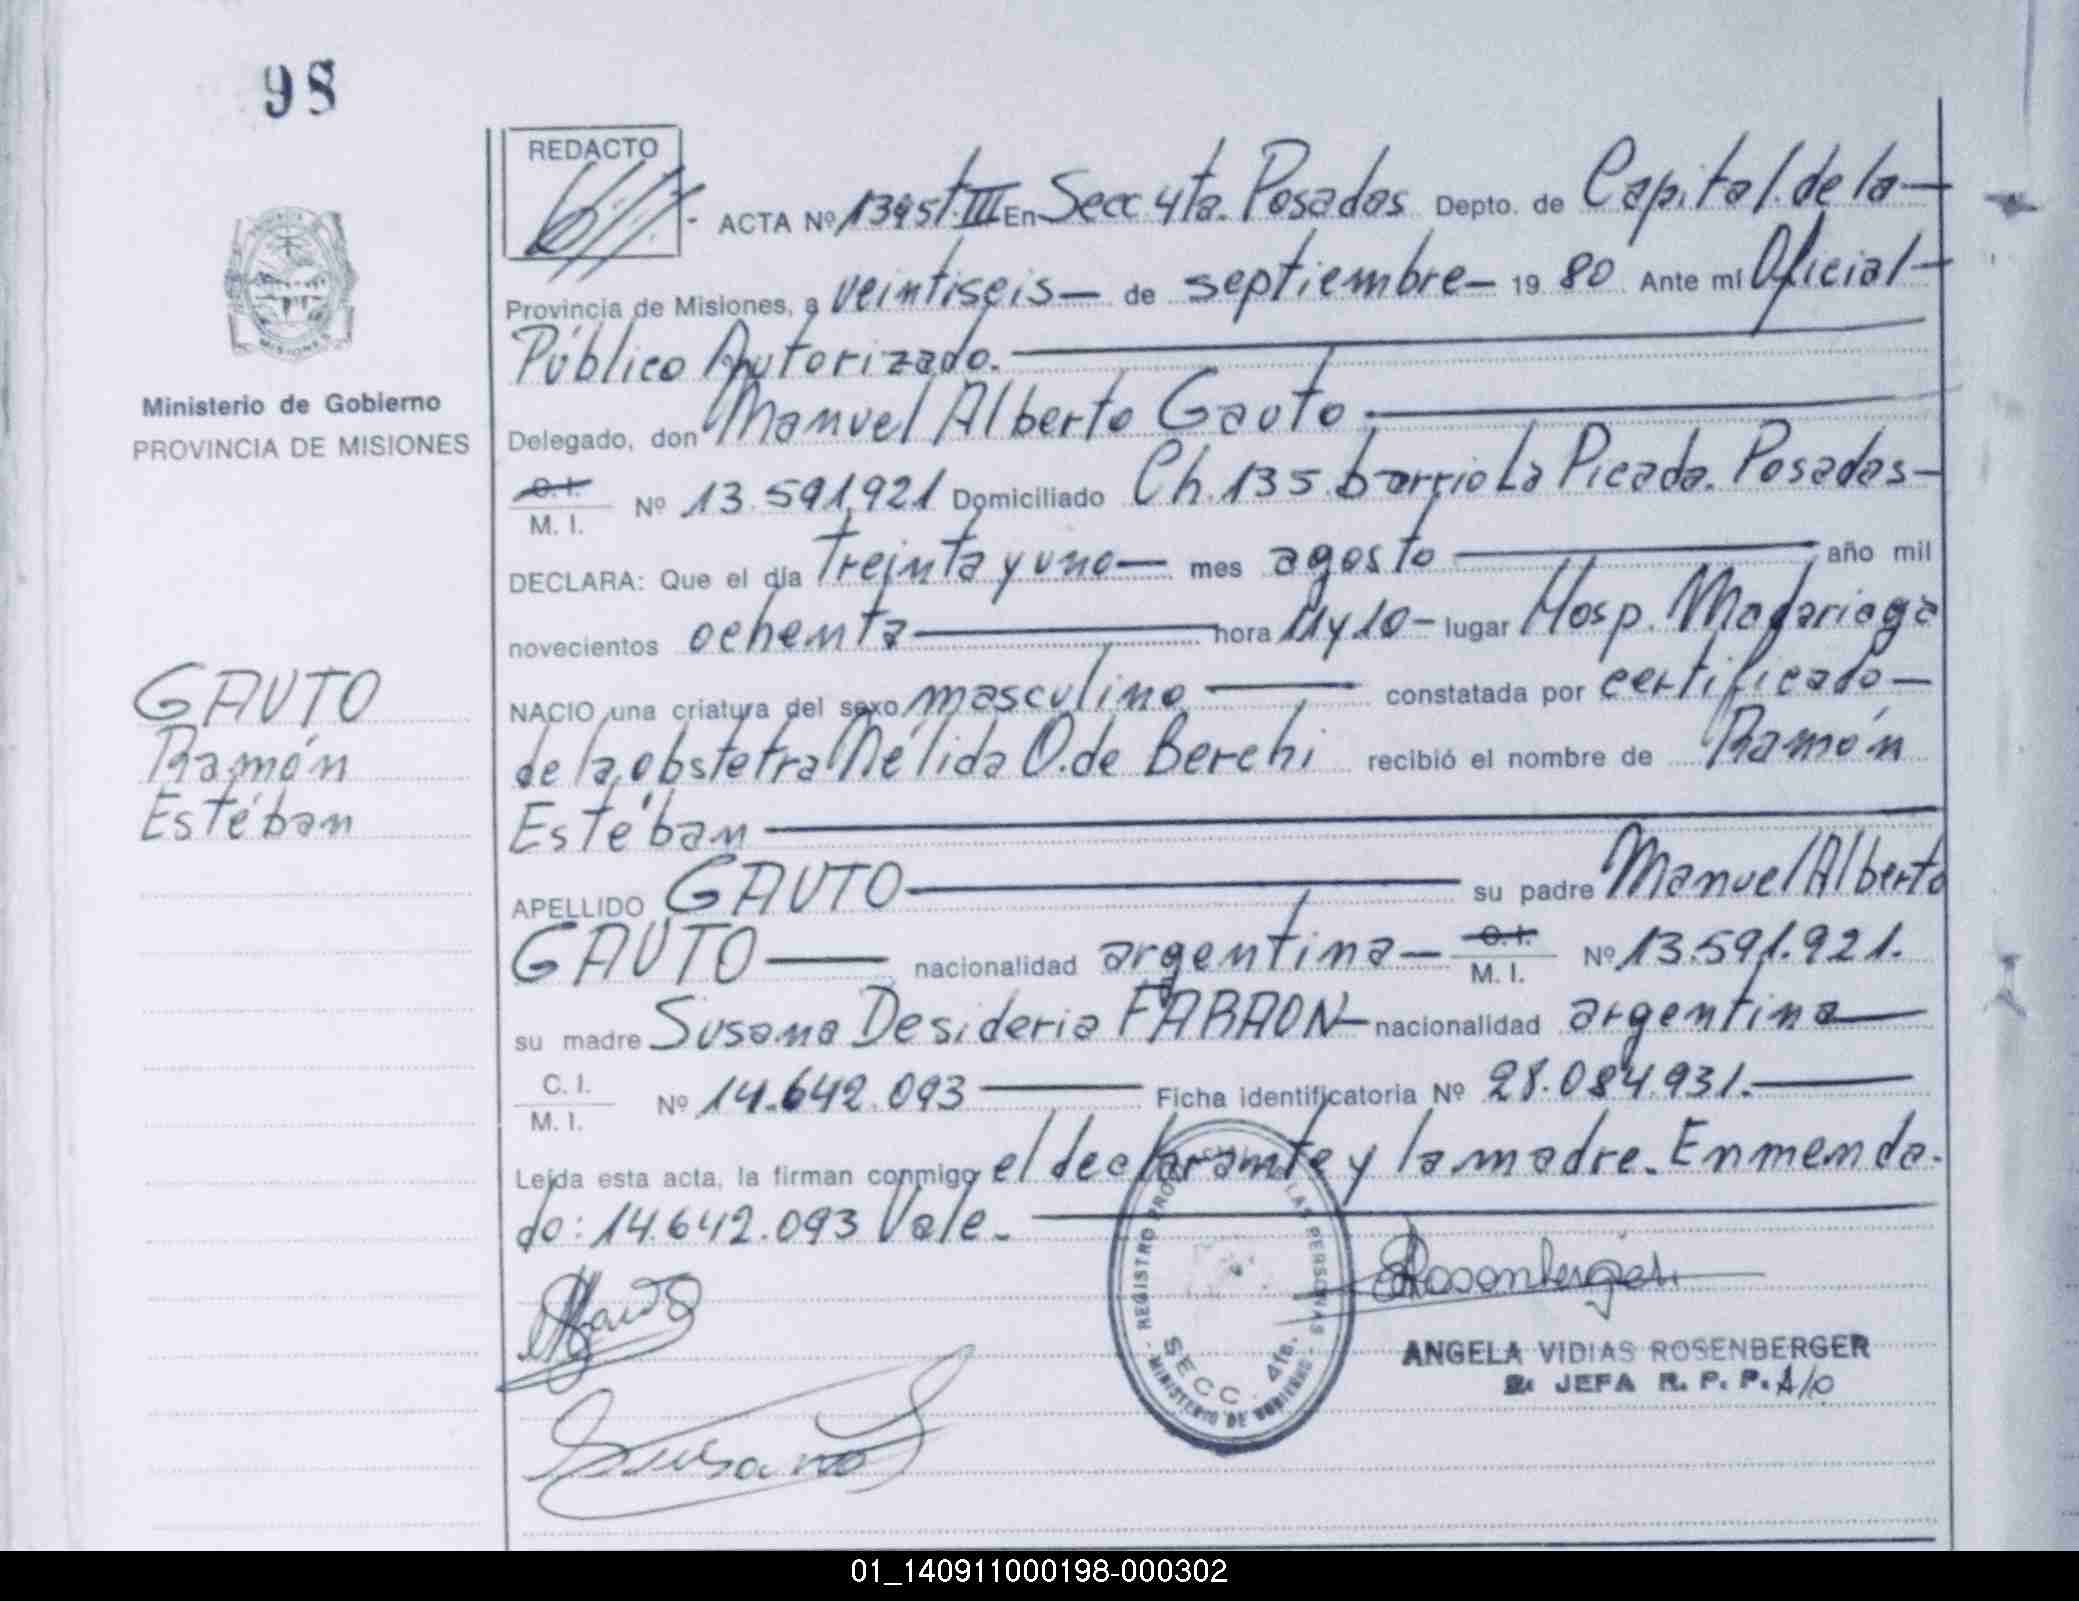 98
REDACTO
ACTA Nº 1395 t. III En Secc 4ta. Posadas Depto. de Capital. de la
Provincia de Misiones, a veintiseis de septiembre 1980 Ante mí Oficial
Público Autorizado.
Delegado, don Manuel Alberto Gauto
C. I. / M. I. Nº 13.591.921 Domiciliado Ch. 135 barrio La Picada. Posadas
DECLARA: Que el día treinta y uno mes agosto año mil
novecientos ochenta hora 11 y 10 lugar Hosp. Madariaga
NACIO una criatura del sexo masculino constatada por certificado
de la obstetra Nélida O. de Berchi recibió el nombre de Ramón
Estéban
APELLIDO GAUTO su padre Manuel Alberto
GAUTO nacionalidad argentina C. I. / M. I. Nº 13.591.921.
su madre Susana Desideria nacionalidad argentina
C. I. / M. I. Nº 14.642.093 Ficha identificatoria Nº 28.084.931.
Leída esta acta, la firman conmigo el declarante y la madre. Enmenda-
do: 14.642.093 Vale.
Ministerio de Gobierno
PROVINCIA DE MISIONES
MISIONES
GAUTO
Ramón
Estéban
REGISTRO LAS PERSONAS
SECC. 4ta.
MINISTERIO DE GOBIERNO
Rosenberger
ANGELA VIDIAS ROSENBERGER
JEFA R. P. P. A/C
Susana
01_140911000198-000302